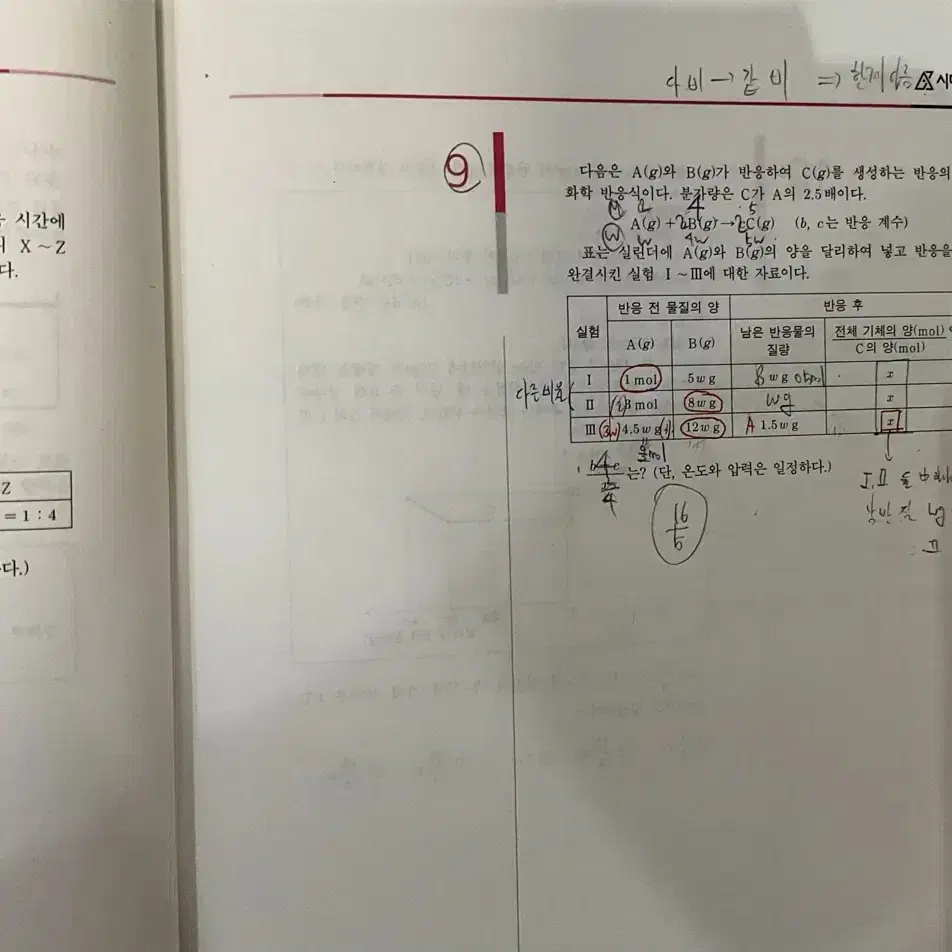 다비 → 같비 ⇒ 한계 다름 시대
9
다음은 A(g)와 B(g)가 반응하여 C(g)를 생성하는 반응의
화학 반응식이다. 분자량은 C가 A의 2.5배이다.
A(g)+bB(g)→cC(g) (b, c는 반응 계수)
w 4w 5w
표는 실린더에 A(g)와 B(g)의 양을 달리하여 넣고 반응을
완결시킨 실험 Ⅰ~Ⅲ에 대한 자료이다.
실험 반응 전 물질의 양 반응 후
A(g) B(g) 남은 반응물의 질량 전체 기체의 양(mol)/C의 양(mol)
다른비율
Ⅰ 1 mol 5w g x
Ⅱ 3 mol 8w g wg x
Ⅲ 4.5w g 12w g A 1.5w g x
는? (단, 온도와 압력은 일정하다.)
16/5
시간에
X~Z
다.
Z
=1:4
다.)